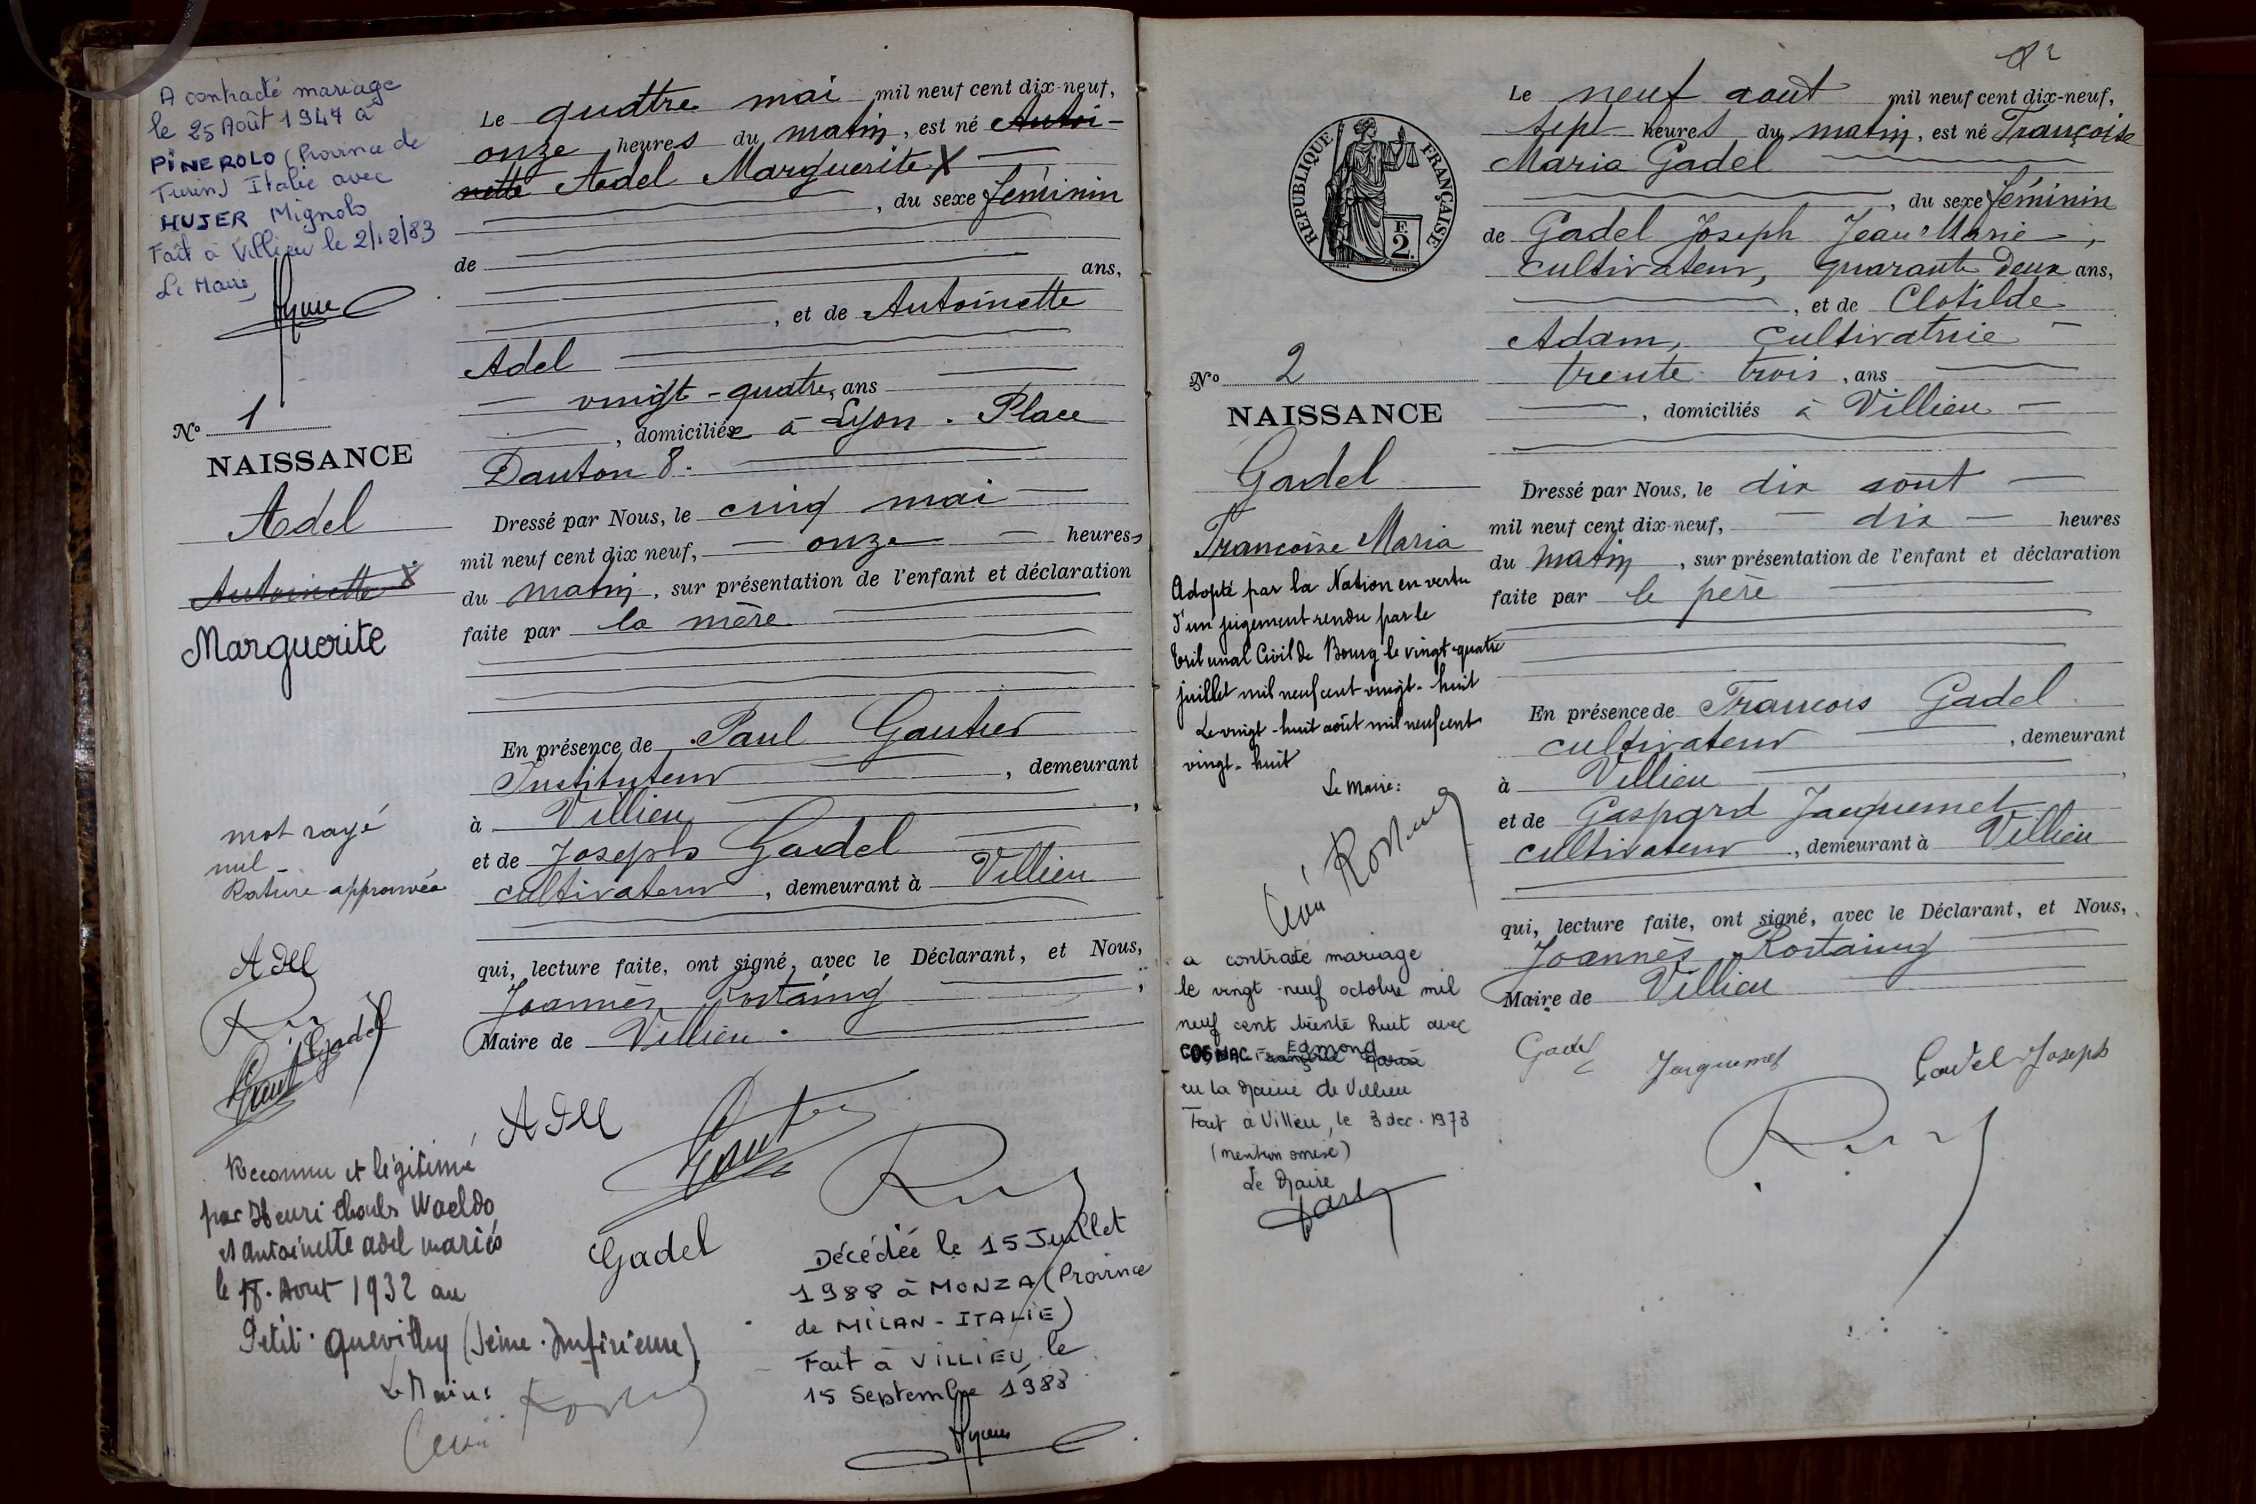 A contracté mariage
le 25 Août 1947 à
PINEROLO (Province de
Turin) Italie avec
HUJER Mignolo
Fait à Villieu le 2/12/83
Le Maire,
N° 1
NAISSANCE
Adel
Antoinette X
Marguerite
mot rayé
nul
Rature approuvée
Adel
Gadel
Gaut
Reconnue et légitimée
par Henri Charles Waeldo
et Antoinette Adel mariés
le 18. Aout 1932 au
Petit-Quevilly (Seine-Inférieure)
Le Maire
Le quattre mai mil neuf cent dix-neuf,
onze heures du matin, est né Antoi-
nette Adel Marguerite X
, du sexe féminin
de
ans,
, et de Antoinette
Adel
vingt-quatre, ans
, domiciliée à Lyon. Place
Danton 8.
Dressé par Nous, le cinq mai
mil neuf cent dix neuf, onze heures,
du matin, sur présentation de l'enfant et déclaration
faite par la mère
En présence de Paul Gautier
Instituteur , demeurant
à Villieu ,
et de Joseph Gadel
cultivateur , demeurant à Villieu
qui, lecture faite, ont signé, avec le Déclarant, et Nous,
Joannès Rostaing ,
Maire de Villieu.
Adel
Gadel
Décédée le 15 Juillet
1988 à MONZA (Province
de MILAN - ITALIE)
Fait à VILLIEU, le
15 Septembre 1988
RÉPUBLIQUE FRANÇAISE
F.
2.
N° 2
NAISSANCE
Gadel
Françoise Maria
Adopté par la Nation en vertu
d'un jugement rendu par le
tribunal Civil de Bourg le vingt-quatre
juillet mil neuf cent vingt-huit
Le vingt-huit août mil neuf cent
vingt-huit
Le Maire:
a contracté mariage
le vingt-neuf octobre mil
neuf cent trente huit avec
COSNAC Edmond
en la Mairie de Villieu
Fait à Villieu, le 3 dec. 1973
(mention omise)
Le Maire
Le neuf aout mil neuf cent dix-neuf,
sept heures du matin, est né Françoise
Maria Gadel
, du sexe féminin
de Gadel Joseph Jean Marie,
cultivateur, quarante deux ans,
, et de Clotilde
Adam, cultivatrice
trente trois, ans
, domiciliés à Villieu
Dressé par Nous, le dix aout
mil neuf cent dix-neuf, dix heures
du matin, sur présentation de l'enfant et déclaration
faite par le père
En présence de Francois Gadel
cultivateur , demeurant
à Villieu ,
et de Gaspard Jacquemet
cultivateur , demeurant à Villieu
qui, lecture faite, ont signé, avec le Déclarant, et Nous,
Joannès Rostaing
Maire de Villieu
Gadel Jacquemet Gadel Joseph